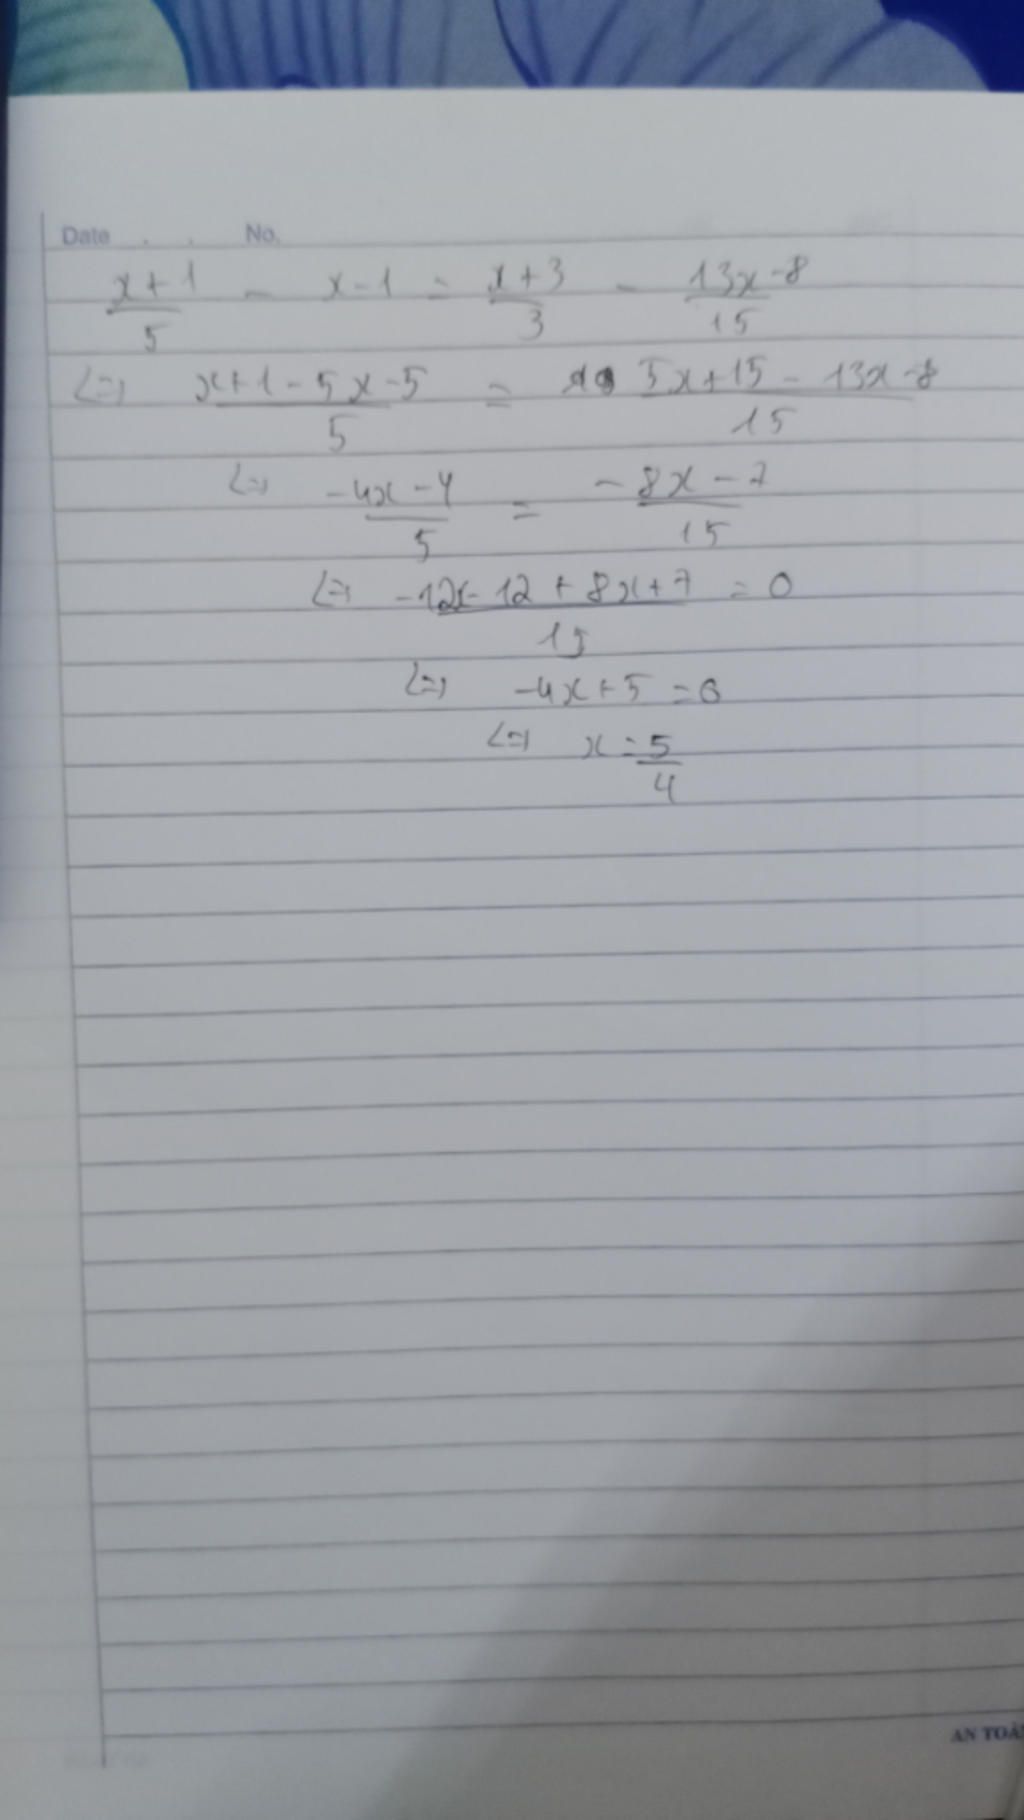 Date . . No.
x+1/5 - x-1 = x+3/3 - 13x-8/15
<=> x+1-5x-5/5 = 5x+15-13x-8/15
<=> -4x-4/5 = -8x-7/15
<=> -12x-12+8x+7/15 = 0
<=> -4x+5 = 0
<=> x = 5/4
AN TOÀ